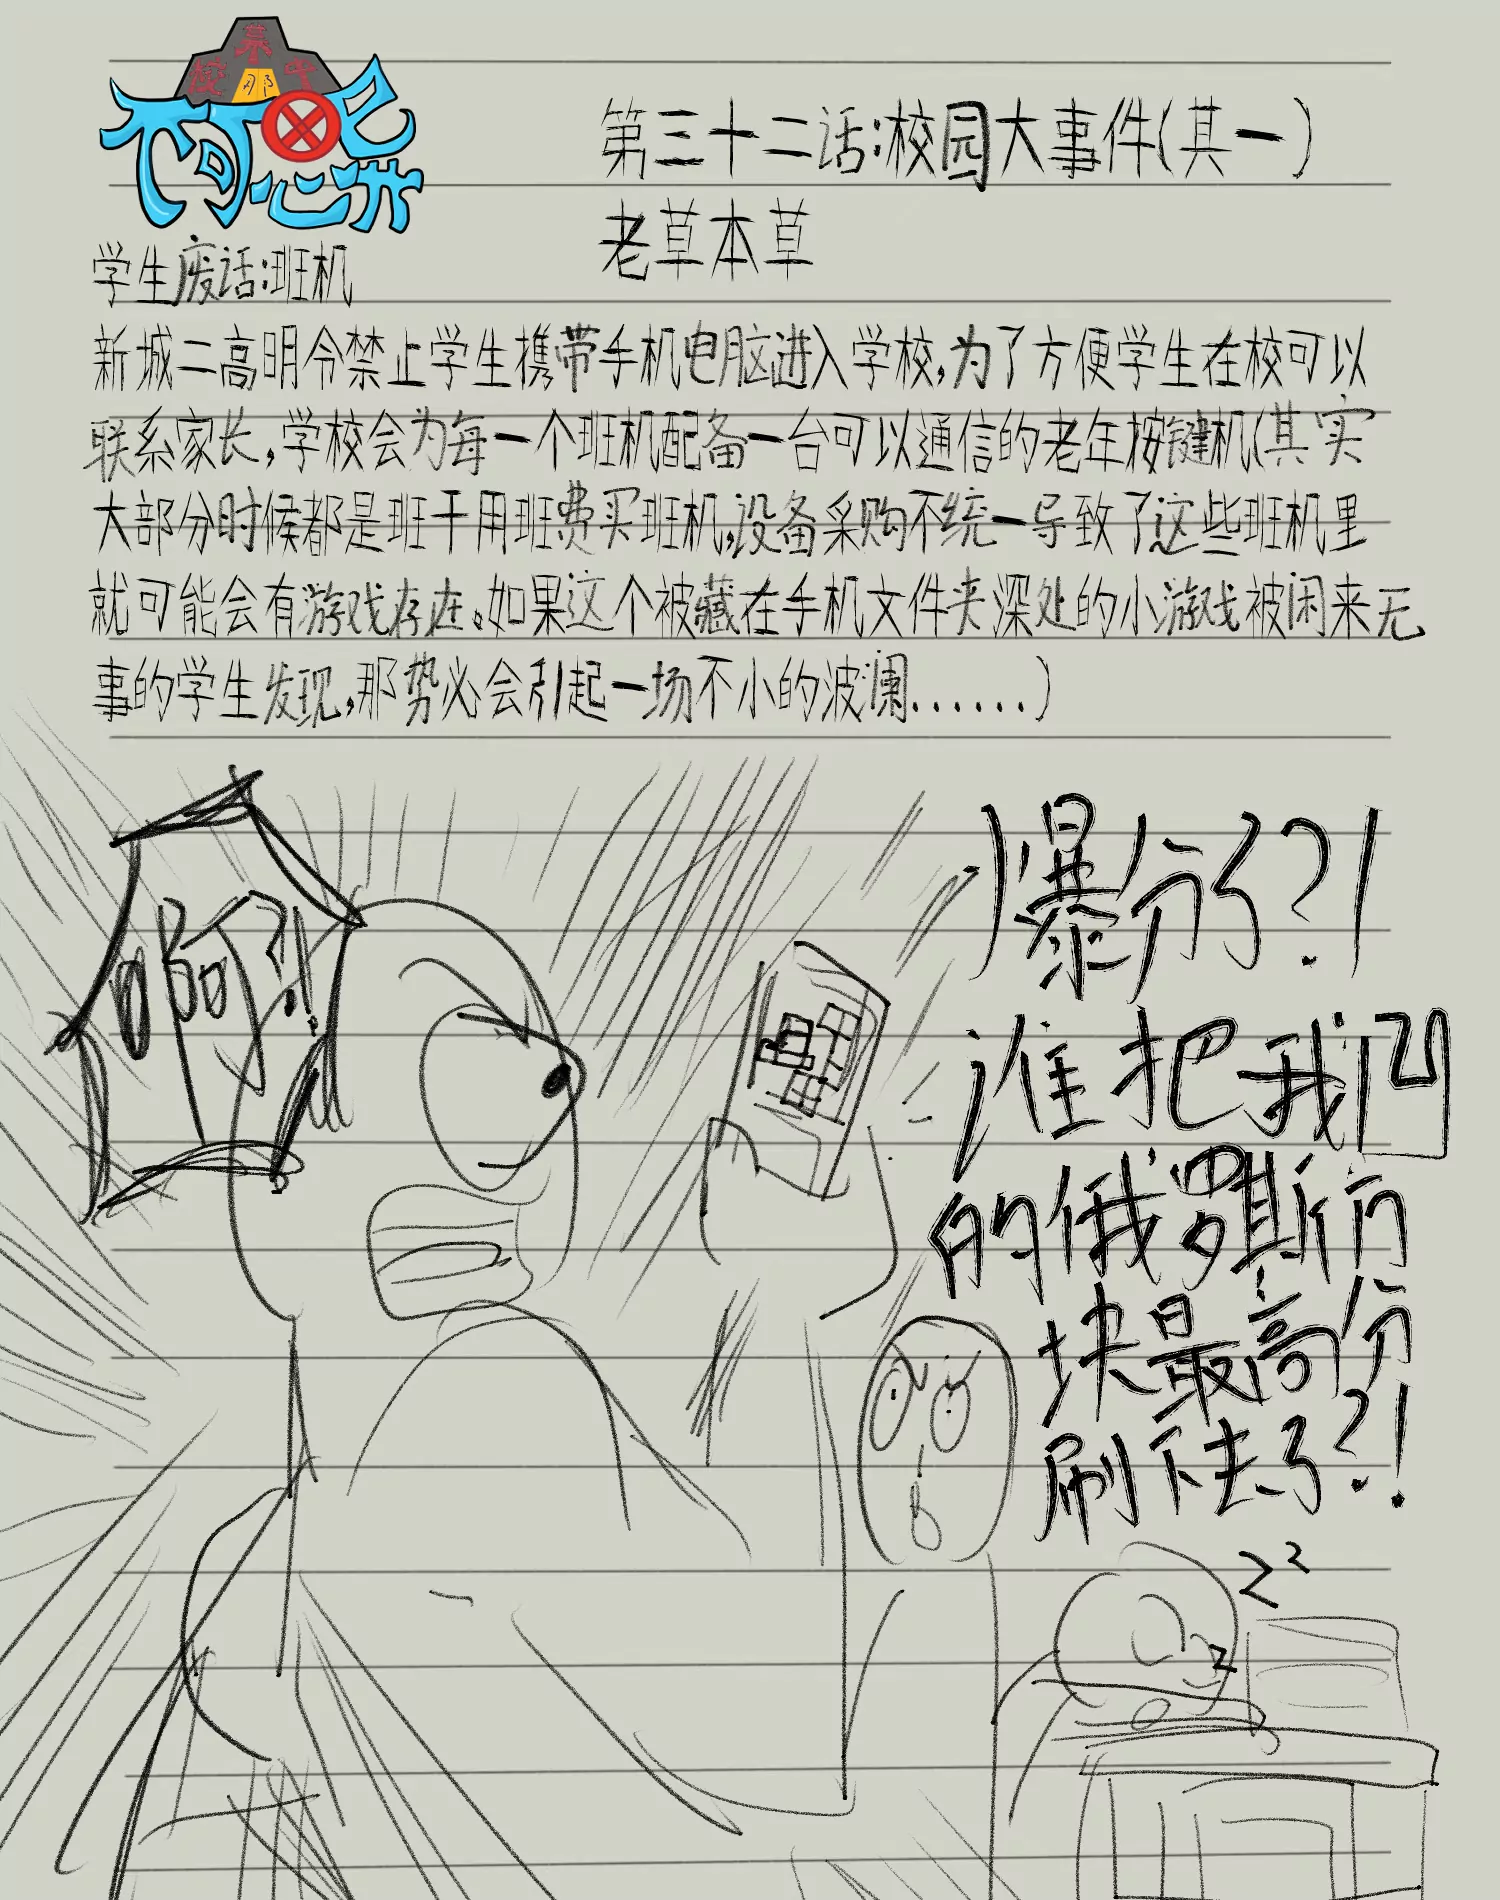 第三十二话:校园大事件(其一)
老草本草
学生废话:班机
新城二高明令禁止学生携带手机电脑进入学校,为了方便学生在校可以
联系家长,学校会为每一个班机配备一台可以通信的老年按键机(其实
大部分时候都是班干用班费买班机,设备采购不统一导致了这些班机里
就可能会有游戏存在。如果这个被藏在手机文件夹深处的小游戏被闲来无
事的学生发现,那势必会引起一场不小的波澜......)
啊?!
爆分了?!
谁把我们
的俄罗斯方
块最高分
刷下去了?!
z z
z